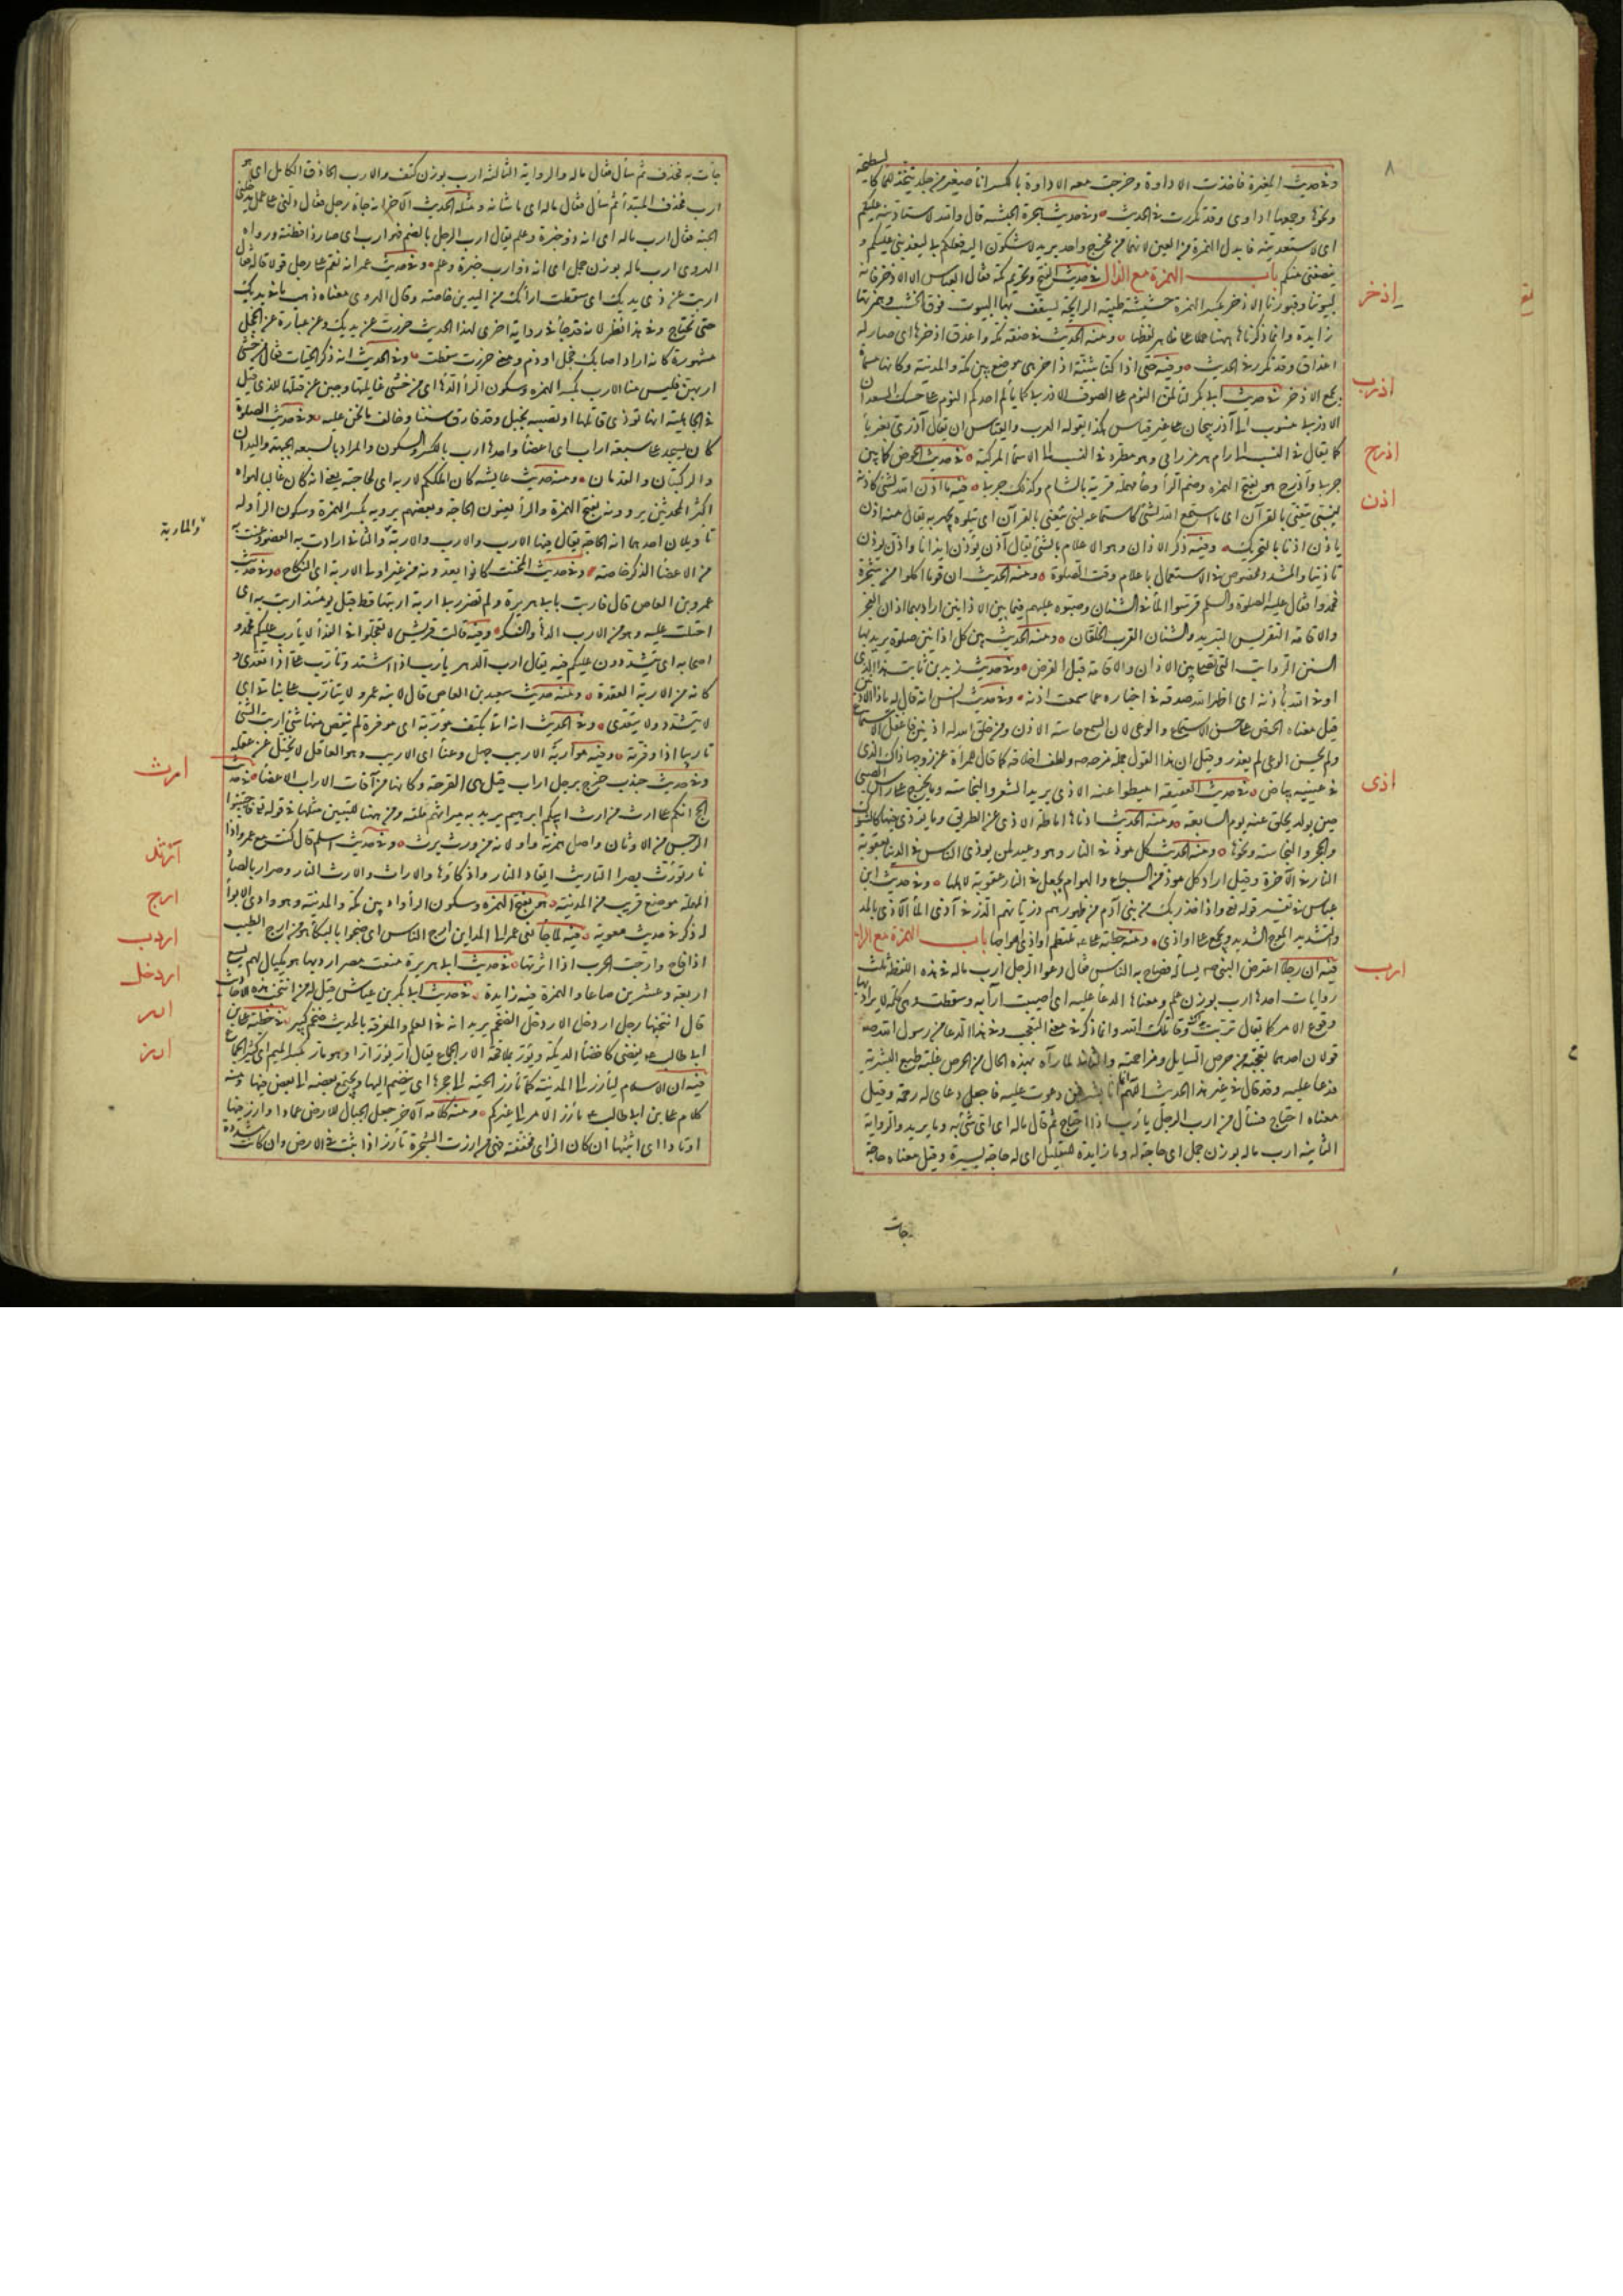 ٨
وفى حديث المغيرة فاخذت الاداوة وخرجت معه الاداوة بالكسر اناء صغير من جلد يتخذ للماء كالسطيحة
ونحوها وجمعها اداوى وقد تكررت فى الحديث وفى حديث هجرة الحبشة قال والله لاستأدينه عليكم
اى لاستعدينه فابدل الهمزة من العين لانهما من مخرج واحد يريد لاشكون اليه فعلكم بى ليعدينى عليكم و
ينصفنى منكم باب الهمزة مع الذال فى حديث الفتح وتحريم مكة فقال العباس الا الاذخر فانه
لبيوتنا وقبورنا الاذخر بكسر الهمزة حشيشة طيبة الرايحة يسقف بها البيوت فوق الخشب وهمزتها
زايدة وانما ذكرناها ههنا حملا على ظاهر لفظها ومنه الحديث فى صفة مكة واعذق اذخرها اى صار له
اعذاق وقد تكرر فى الحديث وفيه حتى اذا كنا بثنية اذاخر هى موضع بين مكة والمدينة وكانها مسماة
بجمع الاذخر فى حديث ابى بكر لتألمن النوم على الصوف الاذربى كما يألم احدكم النوم على حسك السعدان
الاذربى منسوب الى آذربيجان على غير قياس هكذا يقوله العرب والقياس ان يقال آذرى بغير باء
كما يقال فى النسب الى رام هرمز رامى وهو مطرد فى النسب الى الاسماء المركبة فى حديث الحوض كما بين
جربا واذرح هو بفتح الهمزة وضم الراء وحاء مهملة قرية بالشام وكذلك جربا فيه ما اذن الله لشئ كاذنه
لنبى يتغنى بالقرآن اى ما استمع الله لشئ كاستماعه لنبى يتغنى بالقرآن اى يتلوه يجهر به يقال منه اذن
يأذن اذنا بالتحريك وفيه ذكر الاذان وهو الاعلام بالشئ يقال آذن يؤذن ايذانا واذن يؤذن
تأذينا والمشدد مخصوص فى الاستعمال باعلام وقت الصلوة ومنه الحديث ان قوما اكلوا من شجرة
فجمدوا فقال عليه الصلوة والسلام قرسوا الماء فى الشنان وصبوه عليهم فيما بين الاذانين اراد بهما اذان الفجر
والاقامة التقريس التبريد والشنان القرب الخلقان ومنه الحديث بين كل اذانين صلوة يريد بها
السنن الرواتب التى تصلى بين الاذان والاقامة قبل الفرض وفى حديث زيد بن ثابت هذا الذى
اوفى الله بأذنه اى اظهر الله صدقه فى اخباره عما سمعت اذنه وفى حديث انس انه قال له ياذا الاذنين
قيل معناه الحض على حسن الاستماع والوعى لان السمع حاسة الاذن ومن خلق الله له اذنين فاغفل الاستماع
ولم يحسن الوعى لم يعذر وقيل ان هذا القول جملة مزحه ولطف اخلاقه كما قال للمرأة عن زوجها ذاك الذى
فى عينيه بياض فى حديث العقيقة اميطوا عنه الاذى يريد الشعر والنجاسة وما يخرج على رأس الصبى
حين يولد يحلق عنه يوم السابعه ومنه الحديث ادناها اماطة الاذى عن الطريق وما يؤذى فيها كالشوك
والحجر والنجاسة ونحوها ومنه الحديث كل موذ فى النار وهو وعيد لمن يوذى الناس فى الدنيا بعقوبة
النار فى الآخرة وقيل اراد كل موذ من السباع والهوام يجعل فى النار عقوبة لاهلها وفى حديث ابن
عباس فى تفسير قوله تعالى واذ اخذ ربك من بنى آدم من ظهورهم ذرياتهم الذر فى آذى الماء الآذى بالمد
والتشديد الموج الشديد ويجمع على اواذى ومنه خطبة على تلتطم اواذى امواجها باب الهمزة مع الراء
فيه ان رجلا اعترض النبى صلى الله عليه يسأله فصاح به الناس فقال دعوا الرجل ارب ماله فى هذه اللفظة ثلث
روايات احدها ارب بوزن علم ومعناها الدعاء عليه اى اصيبت آرابه وسقطت وهى كلمة لا يراد بها
وقوع الامر كما يقال تربت يداك وقاتلك الله وانما تذكر فى معنى التعجب وفى هذا الدعا من رسول الله صلعم
قولان احدهما تعجبه من حرص السايل ومزاحمته والثانى لما رآه بهذه الحال من الحرص غلبه طبع البشرية
فدعا عليه وقد قال فى غير هذا الحديث اللهم انما انا بشر فمن دعوت عليه فاجعل دعاى له رحمة وقيل
معناه احتاج فسأل من ارب الرجل يأرب اذا احتاج ثم قال ماله اى اى شئ به وما يريد والرواية
الثانية ارب ماله بوزن جمل اى حاجة له وما زايدة للتقليل اى له حاجة يسيرة وقيل معناه حاجة
جاءت
اذخر
اذرب
اذرح
اذن
اذى
ارب
جاءت به فحذف ثم سأل فقال ماله والرواية الثالثة ارب بوزن كتف والارب الحاذق الكامل اى هو
ارب فحذف المبتدأ ثم سأل فقال ماله اى ما شانه ومثله الحديث الآخر انه جاءه رجل فقال دلنى على عمل يدخلنى
الجنة فقال ارب ماله اى انه ذو خبرة وعلم يقال ارب الرجل بالضم فهو ارب اى صار ذا فطنة ورواه
الهروى ارب ماله بوزن جمل اى انه ذو ارب خبرة وعلم وفى حديث عمر انه نقم على رجل قولا قاله فقال
اربت عن ذى يديك اى سقطت ارابك من اليدين خاصة وقال الهروى معناه ذهب ما فى يديك
حتى تحتاج وفى هذا نظر لانه قد جاء فى رواية اخرى لهذا الحديث خررت عن يديك وهى عبارة عن الخجل
مشهورة كانه اراد اصابك خجل او ذم ومعنى خررت سقطت وفى الحديث انه ذكر الحيات فقال من خشى
اربهن فليس منا الارب بكسر الهمزة وسكون الراء الدهاء اى من خشى غايلتها وجبن عن قتلها للذى قيل
فى الجاهلية انها توذى قاتلها او تصيبه بخبل وقد فارق سنتنا وخالف ما نحن عليه وفى حديث الصلوة
كان يسجد على سبعة اراب اى اعضاء واحدها ارب بالكسر والسكون والمراد بالسبعة الجبهة واليدان
والركبتان والقدمان ومنه حديث عايشة كان املككم لاربه اى لحاجته يعنى انه كان غالبا لهواه
اكثر المحدثين يروونه بفتح الهمزة والراء يعنون الحاجة وبعضهم يرويه بكسر الهمزة وسكون الراء وله
تأويلان احدهما انه الحاجة يقال فيها الارب والارب والاربة والثانى ارادت به العضو وعنت به
من الاعضاء الذكر خاصة وفى حديث المخنث كانوا يعدونه من غير اولى الاربة اى النكاح وفى حديث
عمرو بن العاص قال فاربت بابى هريرة ولم تضرر بى اربة اربتها قط قبل يومئذ اربت به اى
احتلت عليه وهو من الارب الدهاء والنكر وفيه قالت قريش لا تعجلوا فى الفداء لا يأرب عليكم محمد و
اصحابه اى يتشددون عليكم فيه يقال ارب الدهر يأرب اذا اشتد وتأرب على اذا تعدى و
كانه من الاربة العقدة ومنه حديث سعيد بن العاص قال لابنه عمرو لا يتأرب على بناتى اى
لا يتشدد ولا يتعدى وفى الحديث انه اتى بكتف مؤربة اى موفرة لم ينقص منها شئ اربت الشئ
تأريبا اذا وفرته وفيه مواربة الاريب جهل وعناء اى الاريب وهو العاقل لا يختل عن عقله
وفى حديث جندب خرج برجل اراب قيل هى القرحة وكانها من آفات الاراب الاعضاء فى حديث
الحج انكم على ارث من ارث ابيكم ابرهيم يريد به ميراثهم ملته ومن ههنا للتبيين مثلها فى قوله تعالى فاجتنبوا
الرجس من الاوثان واصل همزته واو لانه من ورث يرث وفى حديث اسلم قال كنت مع عمر واذا
نار تؤرث بصرار التأريث ايقاد النار واذكاؤها والاراث والارث النار وصرار بالصاد
المهملة موضع قريب من المدينة هو بفتح الهمزة وسكون الراء واد بين مكة والمدينة وهو وادى الابواء
له ذكر فى حديث معوية فيه لما جاء نعى عمر الى المداين ارج الناس اى ضجوا بالبكاء هو من ارج الطيب
اذا فاح وارجت الحرب اذا اثرتها فى حديث ابى هريرة منعت مصر اردبها هو مكيال لهم يسع
اربعة وعشرين صاعا والهمزة فيه زايدة فى حديث ابى بكر بن عياش قيل له من انتخب هذه الاحاديث
قال انتخبها رجل اردخل الاردخل الضخم يريد انه فى العلم والمعرفة بالحديث ضخم كبير فى خطبة على بن
ابى طالب يفضى كافضاء الديكة ويؤر بملاقحه الار الجماع يقال ار يؤر ارا وهو مئر بكسر الميم اى كثير الجماع
فيه ان الاسلام ليأرز الى المدينة كما تأرز الحية الى جحرها اى ينضم اليها ويجتمع بعضه الى بعض فيها ومنه
كلام على بن ابى طالب حتى يأرز الامر الى غيركم ومنه كلامه الآخر جعل الجبال للارض عمادا وارز فيها
اوتادا اى اثبتها ان كان الزاى مخففة فهى من ارزت الشجرة تأرز اذا ثبتت فى الارض وان كانت مشددة
والماربة
ارث
ارثد
ارج
اردب
اردخل
ارر
ارز